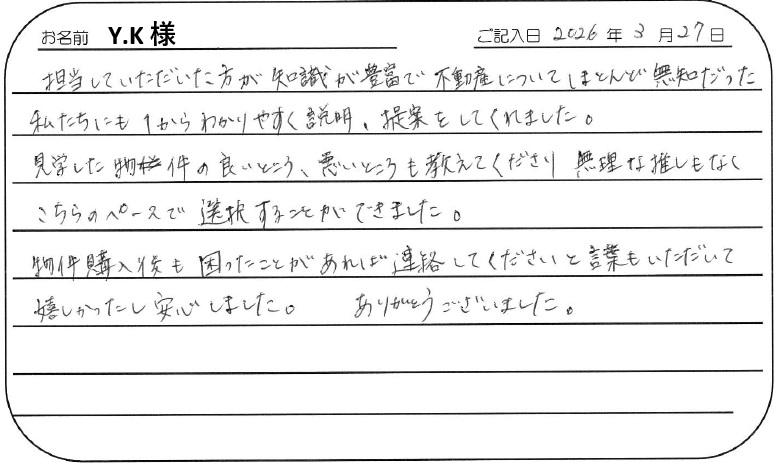 お名前 Y.K 様 ご記入日 2026 年 3 月 27 日
担当していただいた方が知識が豊富で不動産についてほとんど無知だった
私たちにも1からわかりやすく説明、提案をしてくれました。
見学した物件の良いところ、悪いところも教えてくださり 無理な推しもなく
こちらのペースで選択することができました。
物件購入後も困ったことがあれば連絡してくださいと言葉もいただいて
嬉しかったし安心しました。 ありがとうございました。